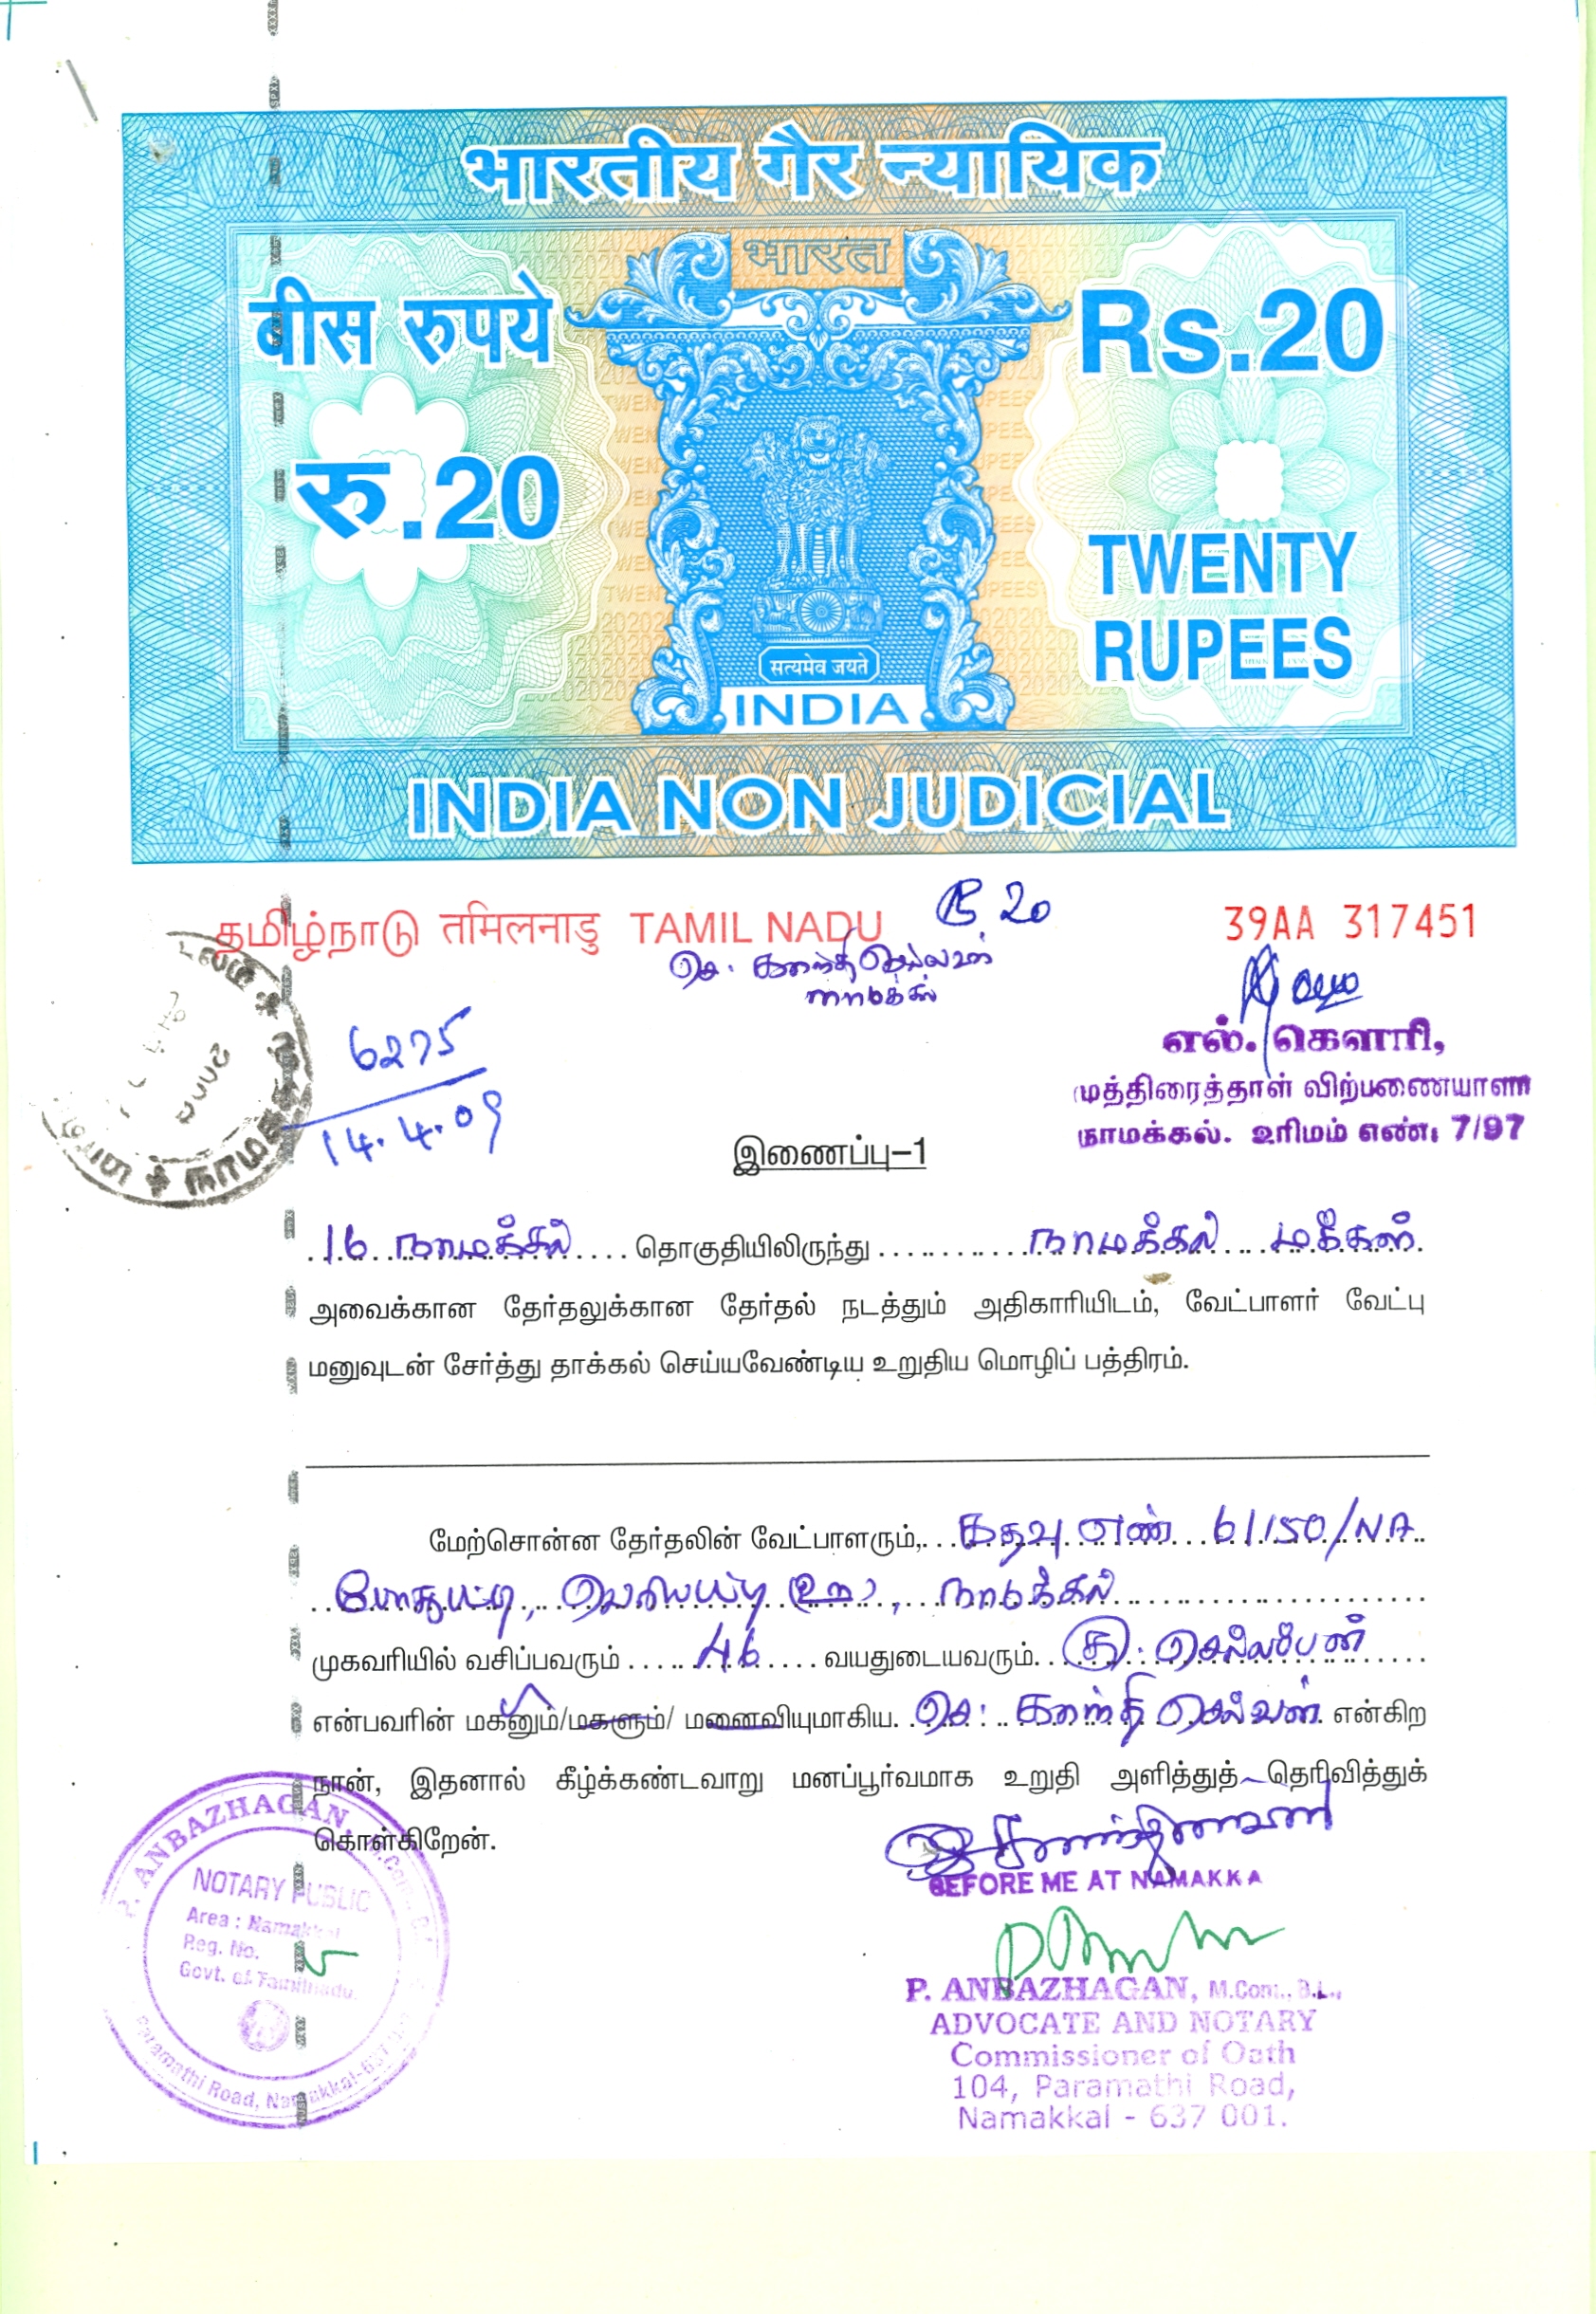 भारतीय गैर न्यायिक
भारत
बीस रुपये
Rs.20
रु.20
TWENTY
RUPEES
सत्यमेव जयते
INDIA
INDIA NON JUDICIAL
தமிழ்நாடு तमिलनाडु TAMIL NADU
20
39AA 317451
செ. காந்திசெல்வன்
நாமக்கல்
எல். கௌரி,
முத்திரைத்தாள் விற்பனையாளர்
நாமக்கல். உரிமம் எண். 7/97
6275
14.4.09
இணைப்பு–1
16 நாமக்கல் தொகுதியிலிருந்து நாமக்கல் மக்கள்
அவைக்கான தேர்தலுக்கான தேர்தல் நடத்தும் அதிகாரியிடம், வேட்பாளர் வேட்பு
மனுவுடன் சேர்த்து தாக்கல் செய்யவேண்டிய உறுதிய மொழிப் பத்திரம்.
மேற்சொன்ன தேர்தலின் வேட்பாளரும், கதவு எண் 6/150/NA
நாமக்கல்
முகவரியில் வசிப்பவரும் 46 வயதுடையவரும்
என்பவரின் மகனும்/மகளும்/ மனைவியுமாகிய. செ. காந்தி செல்வன் என்கிற
நான், இதனால் கீழ்க்கண்டவாறு மனப்பூர்வமாக உறுதி அளித்துத் தெரிவித்துக்
கொள்கிறேன்.
BEFORE ME AT NAMAKKA
P. ANBAZHAGAN, M.Com., B.L.,
ADVOCATE AND NOTARY
Commissioner of Oath
104, Paramathi Road,
Namakkal - 637 001.
P. ANBAZHAGAN,
NOTARY PUBLIC
Area : Namakkal
Reg. No.
Govt. of Tamilnadu.
Paramathi Road, Namakkal-637